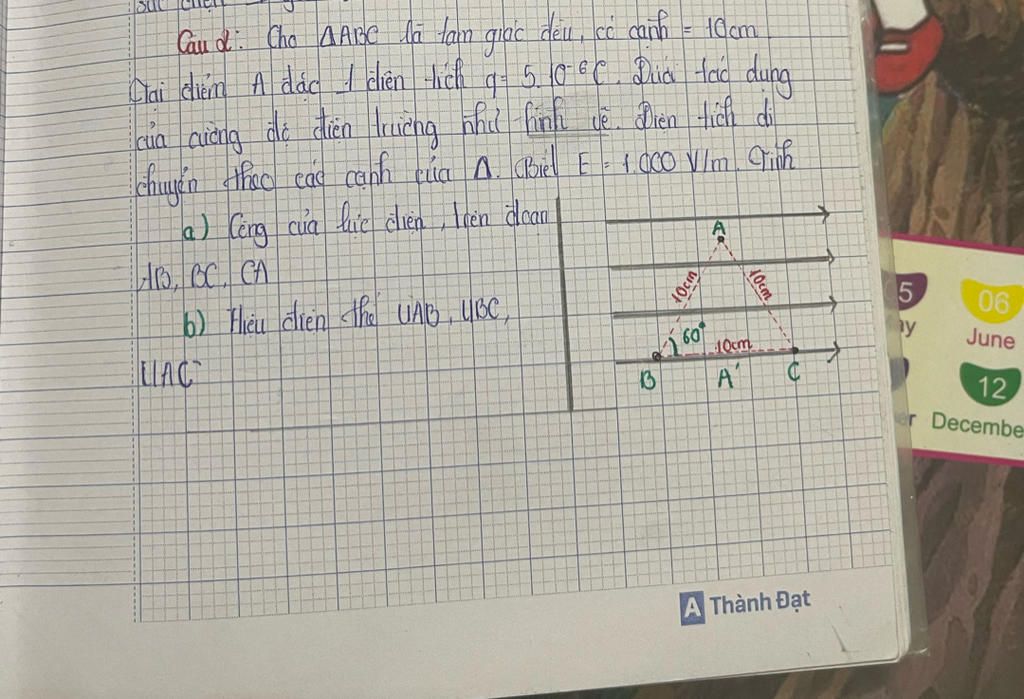 Câu 2: Cho ΔABC là tam giác đều, có cạnh = 10cm
Tại điểm A đặt 1 điện tích q = 5.10⁻⁶C. Dưới tác dụng
của cường độ điện trường như hình vẽ. Điện tích di
chuyển theo các cạnh của Δ. (Biết E = 1.000 V/m. Tính
a) Công của lực điện, trên đoạn
AB, BC, CA
b) Hiệu điện thế UAB, UBC,
UAC
A
10cm
10cm
60°
10cm
B
A'
C
5
06
June
12
Decembe
A Thành Đạt